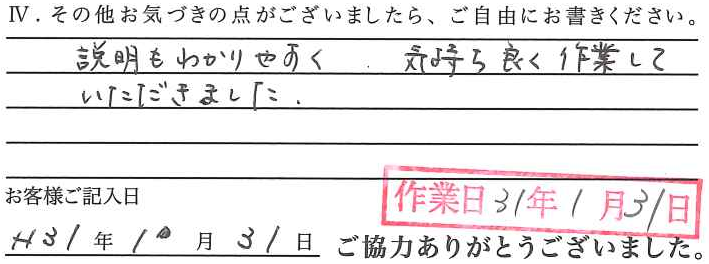 Ⅳ．その他お気づきの点がございましたら、ご自由にお書きください。
説明もわかりやすく 気持ち良く作業して
いただきました.
お客様ご記入日
作業日 31年 1月31日
H31年 1 月 31日
ご協力ありがとうございました。